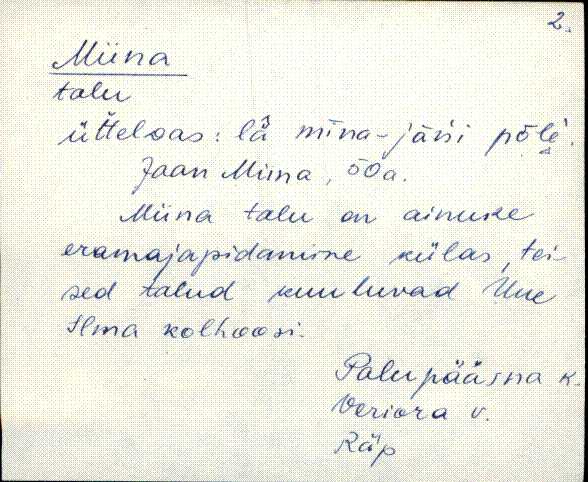 2.
Miina
talu
ütteloas: lä mīna-järsi põle.
Jaan Miina, 50a.
Miina talu on ainuke
eramajapidamine külas, tei-
sed talud kuuluvad Uue
Ilma kolhoosi.
Palupääsna k.
Veriora v.
Räp